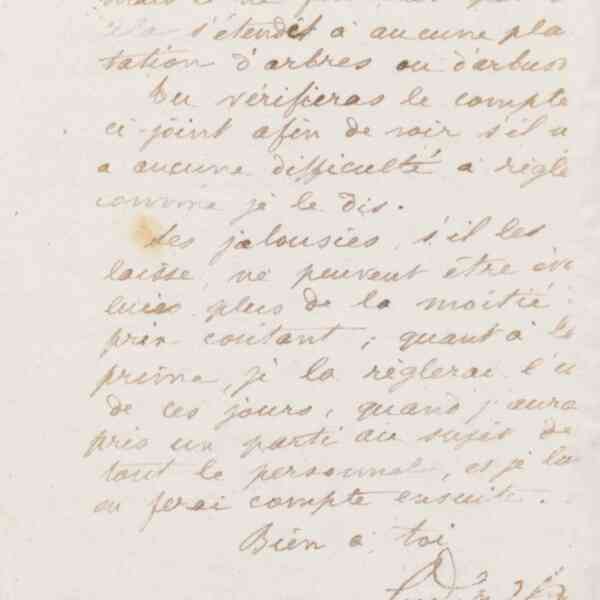 s'étendit à aucune pla
tation d'arbres ou d'arbus
Tu vérifieras le compte
ci-joint afin de voir s'il n
a aucune difficulté à règle
comme je le dis.
Les jalousies, s'il les
laisse, ne peuvent être év
luées plus de la moitié
prix coutant; quant à la
prime, je la règlerai l'u
de ces jours, quand j'aura
pris un parti au sujet de
tout le personnel, et je lu
en ferai compte ensuite.
Bien à toi